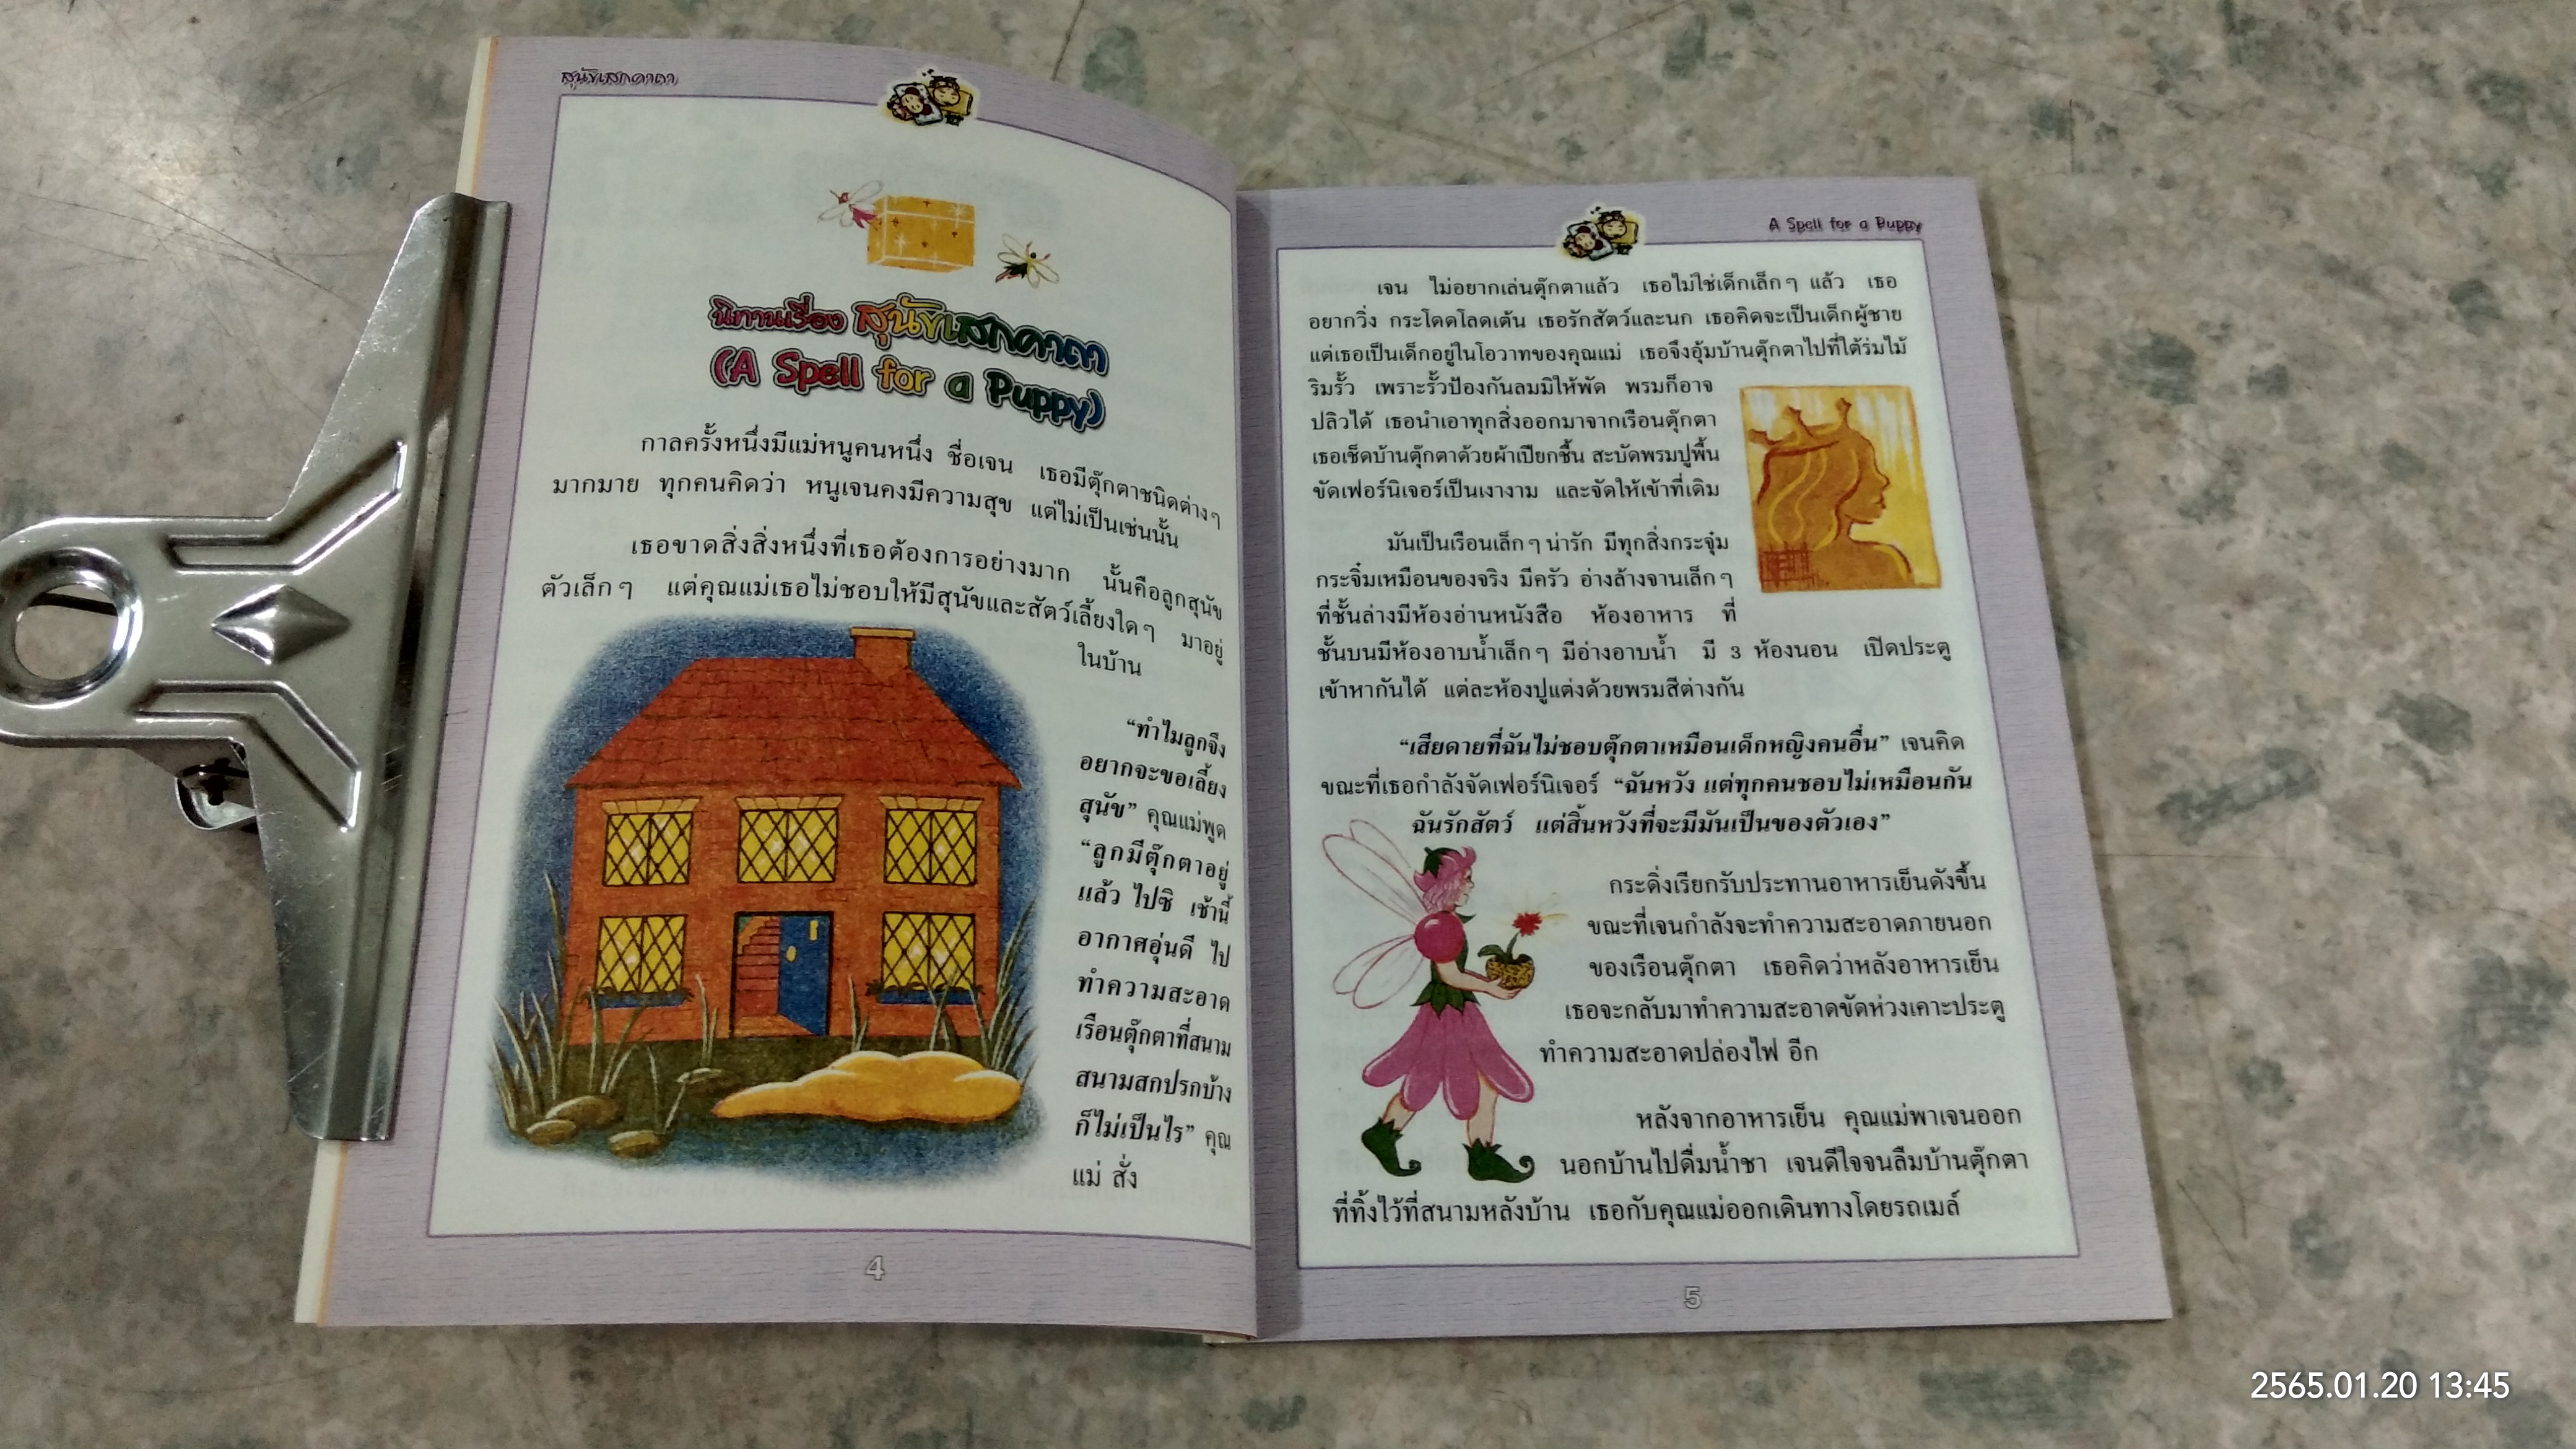 สุนัขเสกคาถา
นิทานเรื่อง สุนัขเสกคาถา
(A Spell for a Puppy)
กาลครั้งหนึ่งมีแม่หนูคนหนึ่ง ชื่อเจน เธอมีตุ๊กตาชนิดต่างๆ
มากมาย ทุกคนคิดว่า หนูเจนคงมีความสุข แต่ไม่เป็นเช่นนั้น
เธอขาดสิ่งสิ่งหนึ่งที่เธอต้องการอย่างมาก นั้นคือลูกสุนัข
ตัวเล็กๆ แต่คุณแม่เธอไม่ชอบให้มีสุนัขและสัตว์เลี้ยงใดๆ มาอยู่
ในบ้าน
“ทำไมลูกจึง
อยากจะขอเลี้ยง
สุนัข” คุณแม่พูด
“ลูกมีตุ๊กตาอยู่
แล้ว ไปซิ เช้านี้
อากาศอุ่นดี ไป
ทำความสะอาด
เรือนตุ๊กตาที่สนาม
สนามสกปรกบ้าง
ก็ไม่เป็นไร” คุณ
แม่ สั่ง
4
A Spell for a Puppy
เจน ไม่อยากเล่นตุ๊กตาแล้ว เธอไม่ใช่เด็กเล็กๆ แล้ว เธอ
อยากวิ่ง กระโดดโลดเต้น เธอรักสัตว์และนก เธอคิดจะเป็นเด็กผู้ชาย
แต่เธอเป็นเด็กอยู่ในโอวาทของคุณแม่ เธอจึงอุ้มบ้านตุ๊กตาไปที่ใต้ร่มไม้
ริมรั้ว เพราะรั้วป้องกันลมมิให้พัด พรมก็อาจ
ปลิวได้ เธอนำเอาทุกสิ่งออกมาจากเรือนตุ๊กตา
เธอเช็ดบ้านตุ๊กตาด้วยผ้าเปียกชื้น สะบัดพรมปูพื้น
ขัดเฟอร์นิเจอร์เป็นเงางาม และจัดให้เข้าที่เดิม
มันเป็นเรือนเล็กๆ น่ารัก มีทุกสิ่งกระจุ๋ม
กระจิ๋มเหมือนของจริง มีครัว อ่างล้างจานเล็กๆ
ที่ชั้นล่างมีห้องอ่านหนังสือ ห้องอาหาร ที่
ชั้นบนมีห้องอาบน้ำเล็กๆ มีอ่างอาบน้ำ มี 3 ห้องนอน เปิดประตู
เข้าหากันได้ แต่ละห้องปูแต่งด้วยพรมสีต่างกัน
“เสียดายที่ฉันไม่ชอบตุ๊กตาเหมือนเด็กหญิงคนอื่น” เจนคิด
ขณะที่เธอกำลังจัดเฟอร์นิเจอร์ “ฉันหวัง แต่ทุกคนชอบไม่เหมือนกัน
ฉันรักสัตว์ แต่สิ้นหวังที่จะมีมันเป็นของตัวเอง”
กระดิ่งเรียกรับประทานอาหารเย็นดังขึ้น
ขณะที่เจนกำลังจะทำความสะอาดภายนอก
ของเรือนตุ๊กตา เธอคิดว่าหลังอาหารเย็น
เธอจะกลับมาทำความสะอาดขัดห่วงเคาะประตู
ทำความสะอาดปล่องไฟ อีก
หลังจากอาหารเย็น คุณแม่พาเจนออก
นอกบ้านไปดื่มน้ำชา เจนดีใจจนลืมบ้านตุ๊กตา
ที่ทิ้งไว้ที่สนามหลังบ้าน เธอกับคุณแม่ออกเดินทางโดยรถเมล์
5
2565.01.20 13:45